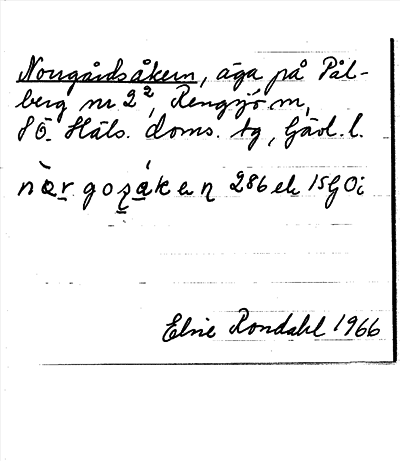 Norrgårdsåkern, äga på Pål-
berg nr 2², Rengsjö sn,
SÖ Häls. doms. tg, Gävl. l.
286 ek 15G0i
Elsie Rondahl 1966